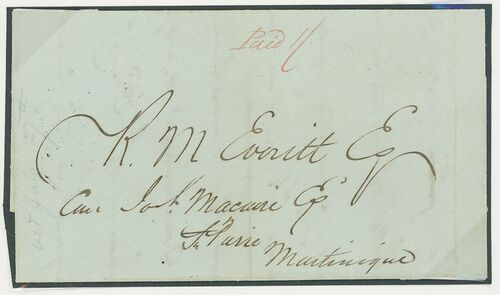 Paid 1/
K. M Everitt Eq
Care Josh. Macuire Eq
St. Pierre
Martinique